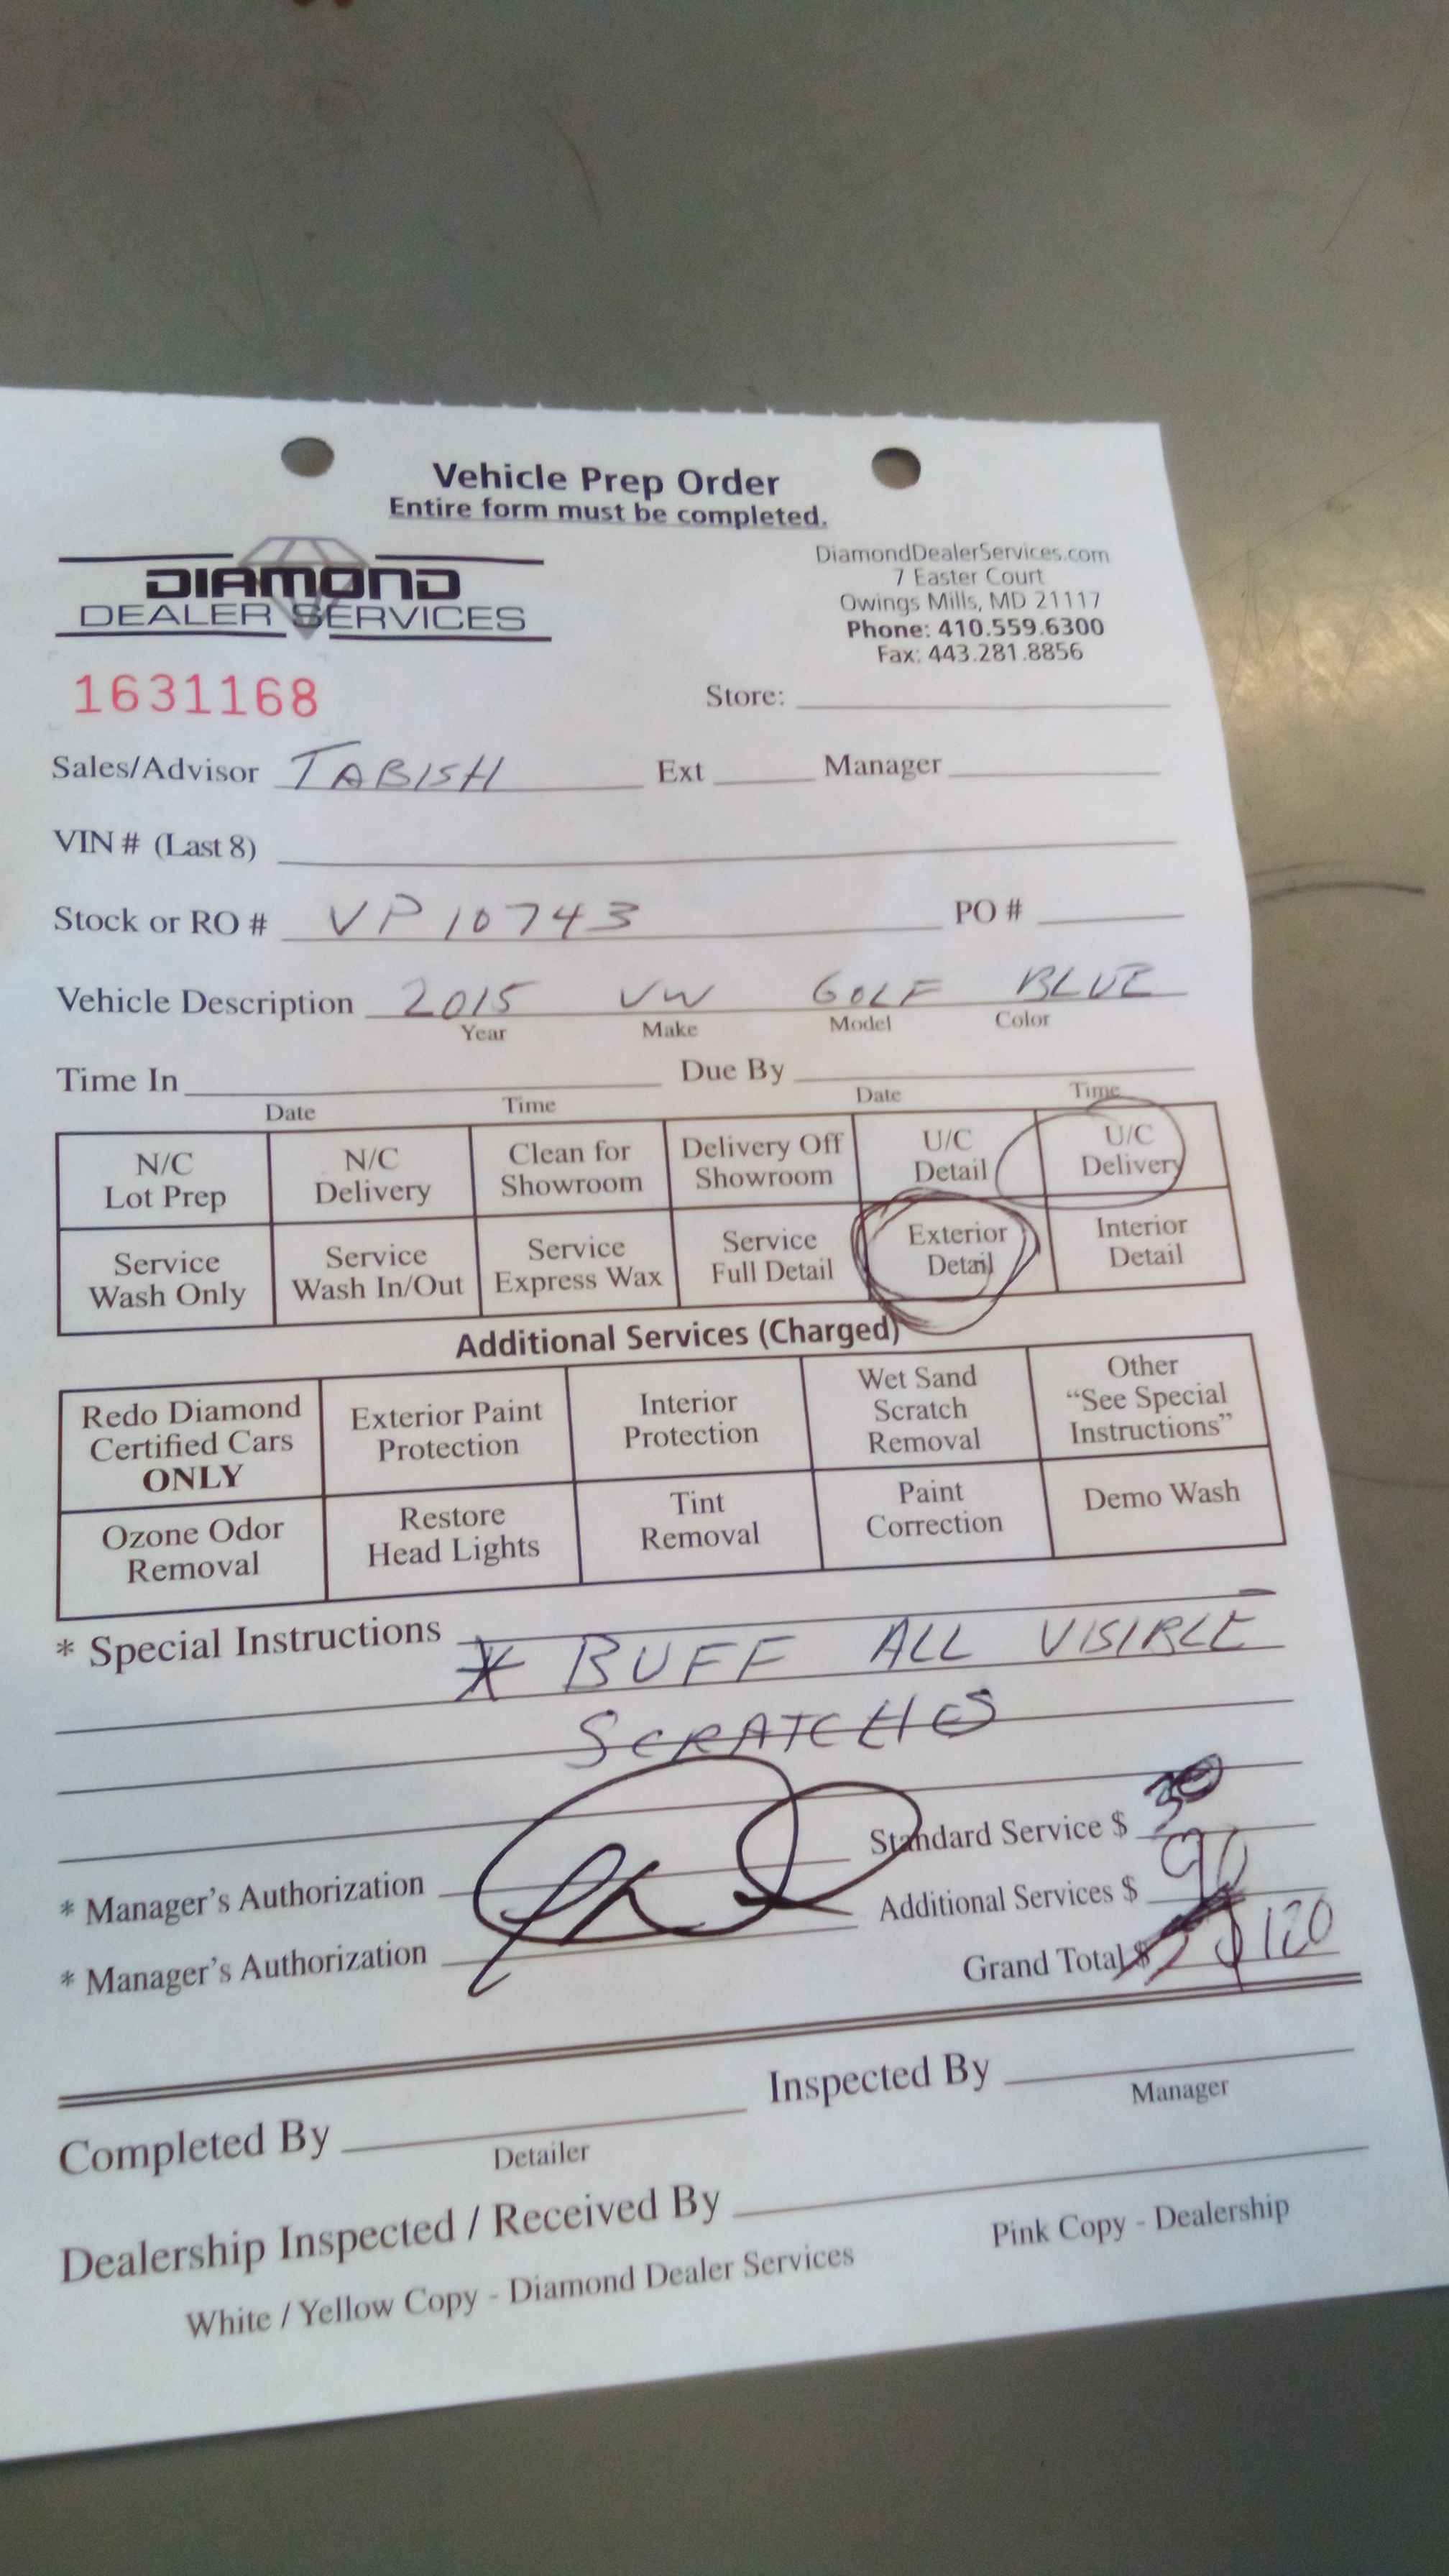 Vehicle Prep Order
Entire form must be completed.
DIAMOND
DEALER SERVICES
DiamondDealerServices.com
7 Easter Court
Owings Mills, MD 21117
Phone: 410.559.6300
Fax: 443.281.8856
1631168
Store:
Sales/Advisor TABISH Ext Manager
VIN # (Last 8)
Stock or RO # VP10743 PO #
Vehicle Description 2015 VW GOLF BLUE
Year Make Model Color
Time In Due By
Date Time Date Time
N/C Lot Prep
N/C Delivery
Clean for Showroom
Delivery Off Showroom
U/C Detail
U/C Delivery
Service Wash Only
Service Wash In/Out
Service Express Wax
Service Full Detail
Exterior Detail
Interior Detail
Additional Services (Charged)
Redo Diamond Certified Cars ONLY
Exterior Paint Protection
Interior Protection
Wet Sand Scratch Removal
Other "See Special Instructions"
Ozone Odor Removal
Restore Head Lights
Tint Removal
Paint Correction
Demo Wash
* Special Instructions * BUFF ALL VISIBLE
SCRATCHES
Standard Service $ 30
* Manager's Authorization Additional Services $ 90
* Manager's Authorization Grand Total $ $120
Completed By Inspected By
Detailer Manager
Dealership Inspected / Received By
White / Yellow Copy - Diamond Dealer Services Pink Copy - Dealership